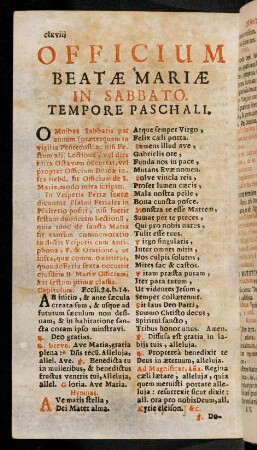 clxviij
OFFICIUM
BEATÆ MARIÆ
IN SABBATO.
TEMPORE PASCHALI.
OMnibus Sabbatis per
annum (præterquam in
vigilia Pentecostes, nisi Fes-
tum IX. Lectionum, vel dies
infra Octavam occurrat, vel
propter Officium
fit Officium de S.
Maria, modo infra scripto.
In Vesperis Feriæ sextæ
dicuntur Psalmi Feriales in
nisi præcedat
Festum duodecim lectionum,
quia tunc de sancta Maria
fit tantum commemoratio
in dictis Vesperis cum Anti-
phona, V. & Oratione, ut
Capitulum. Eccli. 24. b. 14.
AB initio, & ante sæcula
creata sum, & usque ad
futurum sæculum non desi-
nam, & in habitatione san-
cta coram ipso ministravi.
R. Deo gratias.
R. breve. Ave Maria, gratia
plena: * Dñs tecũ. Alleluja,
allel. Ave. V. Benedicta tu
in mulieribus, & benedictus
fructus ventris tui, Alleluja,
allel. Gloria. Ave Maria.
Hymnus.
AVe maris stella,
Dei Mater alma.
Atque semper Virgo,
Felix cæli porta.
Sumens illud ave,
Gabrielis ore,
Funda nos in pace,
Mutans Evæ nomen.
Solve vincla reis,
Profer lumen cæcis,
Mala nostra pelle,
Bona cuncta posce.
Monstra te esse Matrem,
Sumat per te preces,
Qui pro nobis natus,
Tulit esse tuus.
Virgo singularis,
Inter omnes mitis,
Nos culpis solutos,
Mites fac & castos.
Vitam præsta puram,
Iter para tutum,
Ut videntes Jesum,
Semper collætemur.
Sit laus Deo Patri,
Summo Christo decus,
Spiritui sancto,
Tribus honor unus. Amen.
V. Diffusa est gratia in la-
bijs tuis, alleluja.
R. Propterea benedixit te
Deus in æternum, alleluja.
Ad Magnificat, Aña. Regina
cæli lætare, alleluja, quia
quem meruisti portare alle-
luja: resurrexit sicut dixit:
all. ora pro nobis Deum, all.
Kyrie eleison. &c.
V. Do-